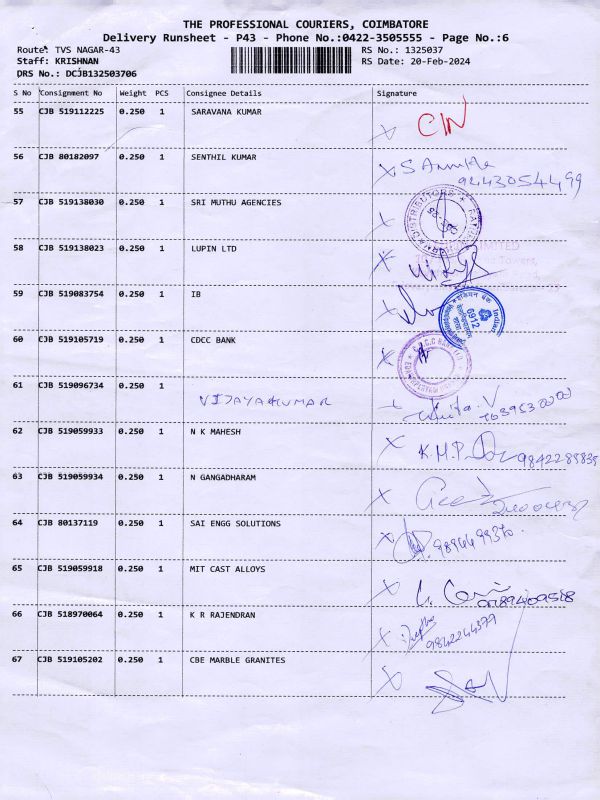 THE PROFESSIONAL COURIERS, COIMBATORE
Delivery Runsheet - P43 - Phone No.:0422-3505555 - Page No.:6
Route: TVS NAGAR-43 RS No.: 1325037
Staff: KRISHNAN RS Date: 20-Feb-2024
DRS No.: DCJB132503706
S No Consignment No Weight PCS Consignee Details Signature
55 CJB 519112225 0.250 1 SARAVANA KUMAR
56 CJB 80182097 0.250 1 SENTHIL KUMAR
9443054499
57 CJB 519138030 0.250 1 SRI MUTHU AGENCIES
58 CJB 519138023 0.250 1 LUPIN LTD
59 CJB 519083754 0.250 1 IB
Indian
0912
60 CJB 519105719 0.250 1 CDCC BANK
61 CJB 519096734 0.250 1 VIJAYAKUMAR
62 CJB 519059933 0.250 1 N K MAHESH
K.M.P. 9842289839
63 CJB 519059934 0.250 1 N GANGADHARAM
64 CJB 80137119 0.250 1 SAI ENGG SOLUTIONS
65 CJB 519059918 0.250 1 MIT CAST ALLOYS
66 CJB 518970064 0.250 1 K R RAJENDRAN
9842244379
67 CJB 519105202 0.250 1 CBE MARBLE GRANITES